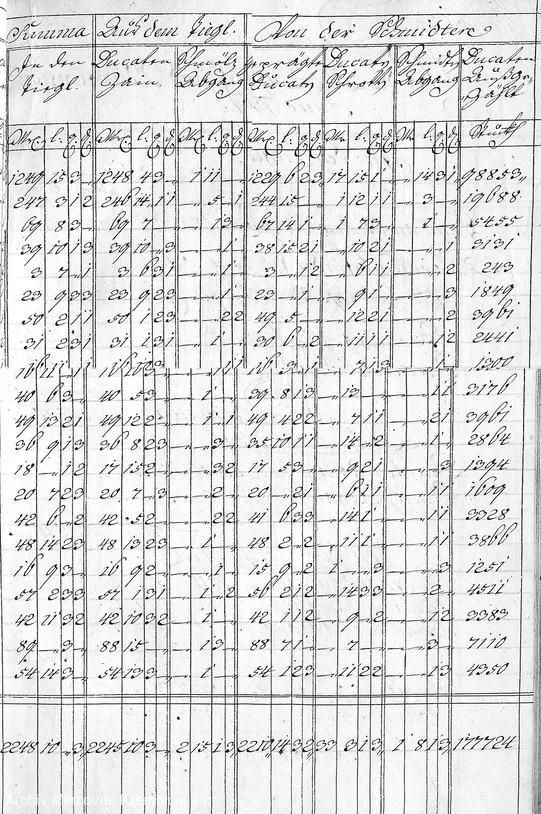 Summa Auß dem Tiegl. Von der Schmidten
In den Ducaten Schmölz geprägte Ducaty Schmidty Ducaten
Tiegl. Zain. Abgang Ducaty Schrott Abgang Außge„
zählt
Stuckh
1249 15 3 1248 4 3 1 1 1 1229 6 2 3 17 15 1 14 3 1 98853
247 3 1 2 246 14 1 1 5 1 244 15 1 12 1 1 3 19688
69 8 3 69 7 1 3 67 14 1 1 7 3 1 5455
39 10 1 3 39 10 3 1 38 15 2 1 10 2 1 2 3131
3 7 1 3 6 3 1 1 3 1 2 6 1 1 2 243
23 9 3 3 23 9 2 3 1 23 1 9 1 3 1849
50 2 1 1 50 1 2 3 2 2 49 5 12 2 1 2 3961
31 2 3 1 31 1 3 1 1 30 6 2 11 1 1 2 2441
1300
40 6 3 40 5 3 1 39 8 1 3 13 1 1 3176
49 13 2 1 49 12 2 1 1 49 4 2 2 7 1 1 2 1 3961
36 9 1 3 36 8 2 3 3 35 10 1 1 14 2 1 2864
18 1 2 17 15 2 3 2 17 5 3 9 2 1 3 1394
20 7 2 3 20 7 3 2 20 2 1 6 1 1 1 1 1609
42 6 2 42 5 2 2 2 41 6 3 3 14 1 1 1 3328
48 14 2 3 48 13 2 3 1 48 2 2 11 1 1 1 3866
16 9 3 16 9 2 1 15 9 2 1 3 3 1251
57 2 3 3 57 1 3 1 1 2 56 2 1 2 14 3 3 2 4511
42 11 3 2 42 10 3 2 1 42 1 1 2 9 2 1 2 3383
89 3 88 15 1 3 88 7 1 7 3 7110
54 14 3 54 13 3 1 54 1 2 3 11 2 2 1 3 4350
2248 10 3 2245 10 3 2 15 1 3 2210 14 3 2 33 3 1 3 1 8 1 3 177724